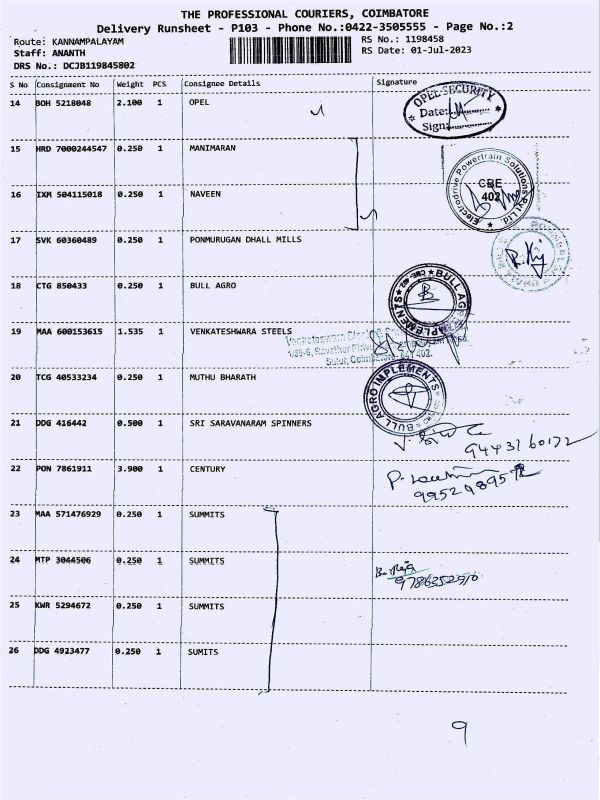 THE PROFESSIONAL COURIERS, COIMBATORE
Delivery Runsheet - P103 - Phone No.:0422-3505555 - Page No.:2
Route: KANNAMPALAYAM RS No.: 1198458
Staff: ANANTH RS Date: 01-Jul-2023
DRS No.: DCJB119845802
S No Consignment No Weight PCS Consignee Details Signature
14 BOH 5218048 2.100 1 OPEL
OPEL SECURITY
Date:
Sign:
15 HRD 7000244547 0.250 1 MANIMARAN
Electrodrive Powertrain Solutions Pvt Ltd
CBE
402
16 IXM 504115018 0.250 1 NAVEEN
17 SVK 60360489 0.250 1 PONMURUGAN DHALL MILLS
18 CTG 850433 0.250 1 BULL AGRO
BULL AGRO IMPLEMENTS
19 MAA 600153615 1.535 1 VENKATESHWARA STEELS
Sulur, Coimbatore 641 402.
20 TCG 40533234 0.250 1 MUTHU BHARATH
BULL AGRO IMPLEMENTS
21 DDG 416442 0.500 1 SRI SARAVANARAM SPINNERS
9443160172
22 PON 7861911 3.900 1 CENTURY
23 MAA 571476929 0.250 1 SUMMITS
24 MTP 3044506 0.250 1 SUMMITS
9786352510
25 KWR 5294672 0.250 1 SUMMITS
26 DDG 4923477 0.250 1 SUMITS
9